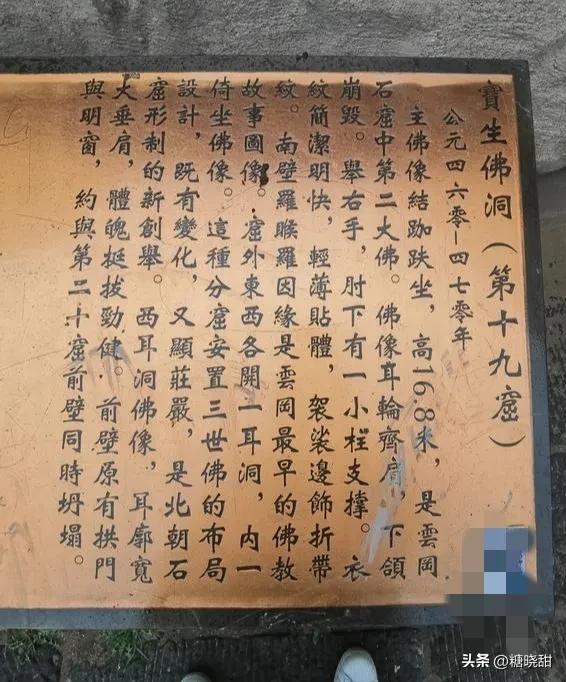 寶生佛洞（第十九窟）
公元四六零-四七零年
主佛像結跏趺坐，高16.8米，是雲岡
石窟中第二大佛。佛像耳輪齊肩，下頜
崩毀。舉右手，肘下有一小柱支撐。衣
紋簡潔明快，輕薄貼體，袈裟邊飾折帶
紋。南壁羅睺羅因緣是雲岡最早的佛教
故事圖像。窟外東西各開一耳洞，內一
倚坐佛像。這種分窟安置三世佛的布局
設計，既有變化，又顯莊嚴，是北朝石
窟形制的新創舉。西耳洞佛像，耳廓寬
大垂肩，體魄挺拔勁健。前壁原有拱門
與明窗，約與第二十窟前壁同時坍塌。
头条 @糖晓甜